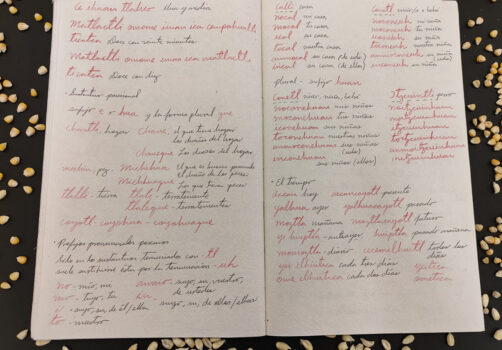 Ce ihuan tlahco Una y media
Matlactli omome ihuan cea cempohualli
tzontin Doce con veinte minutos
Matlactli omome ihuan cea matlactli
tzontin Doce con diez
· Sustantivo posesional
sufijo e o hua y la forma plural que
chantli, hogar Chane, el que tiene hogar
los dueños del hogar
chaneque Los dueños del hogar
michin, pez. Michihua El que es
el dueño de los peces
Michhuaque
Los que tienen peces
tlalli - tierra tlale - terrateniente
tlaleque - terratenientes
coyotl - coyohua - coyohuaque
· Prefijos pronominales posesivos
Solo en los sustantivos terminados con -tl
se sustituye esta por la terminación -uh
no - mío, mi amo - suyo, su, vuestro,
de ustedes
mo - tuyo, tu in - suyo, su, de ellos/ellas
i - suyo, su, de él/ella
to - nuestro
Calli casa
nocal mi casa
mocal tu casa
ical su casa
tocal nuestra casa
amocal su casa (de uds)
incal su casa (de ellos)
Conetl niño/a o bebé
noconeuh mi niño
moconeuh tu niño
iconeuh su niño
toconeuh nuestro niño
amoconeuh su niño
inconeuh su niño
plural - sufijo huan
Conetl niño, niña, bebé
noconehuan mis niños
moconehuan tus niños
iconehuan sus niños
toconehuan nuestros niños
amoconehuan sus niños (uds)
inconehuan sus niños (ellos)
Itzcuintli perro
noitzcuinhuan
moitzcuinhuan
itzcuinhuan
toitzcuinhuan
amoitzcuinhuan
initzcuinhuan
· El tiempo
axan hoy presente
yalhua ayer pasado
moztla mañana futuro
ye huiptla - anteayer huiptla pasado mañana
momoztla - diario cecemilhuitl todos los
días
yei ilhuitica cada tres días
ome ilhuitica cada dos días